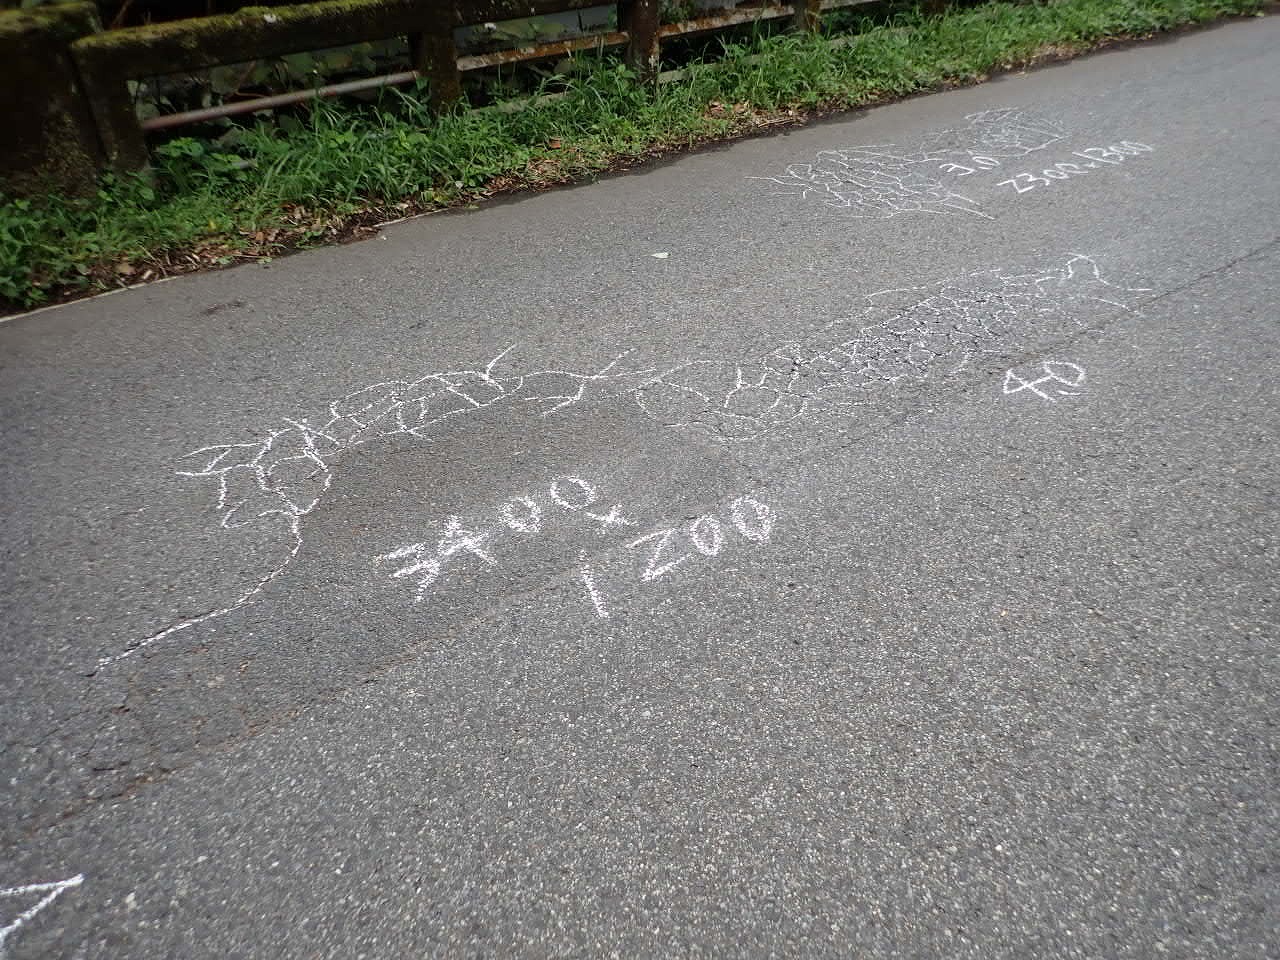 3.0
2300×1300
4.0
3400×
1200